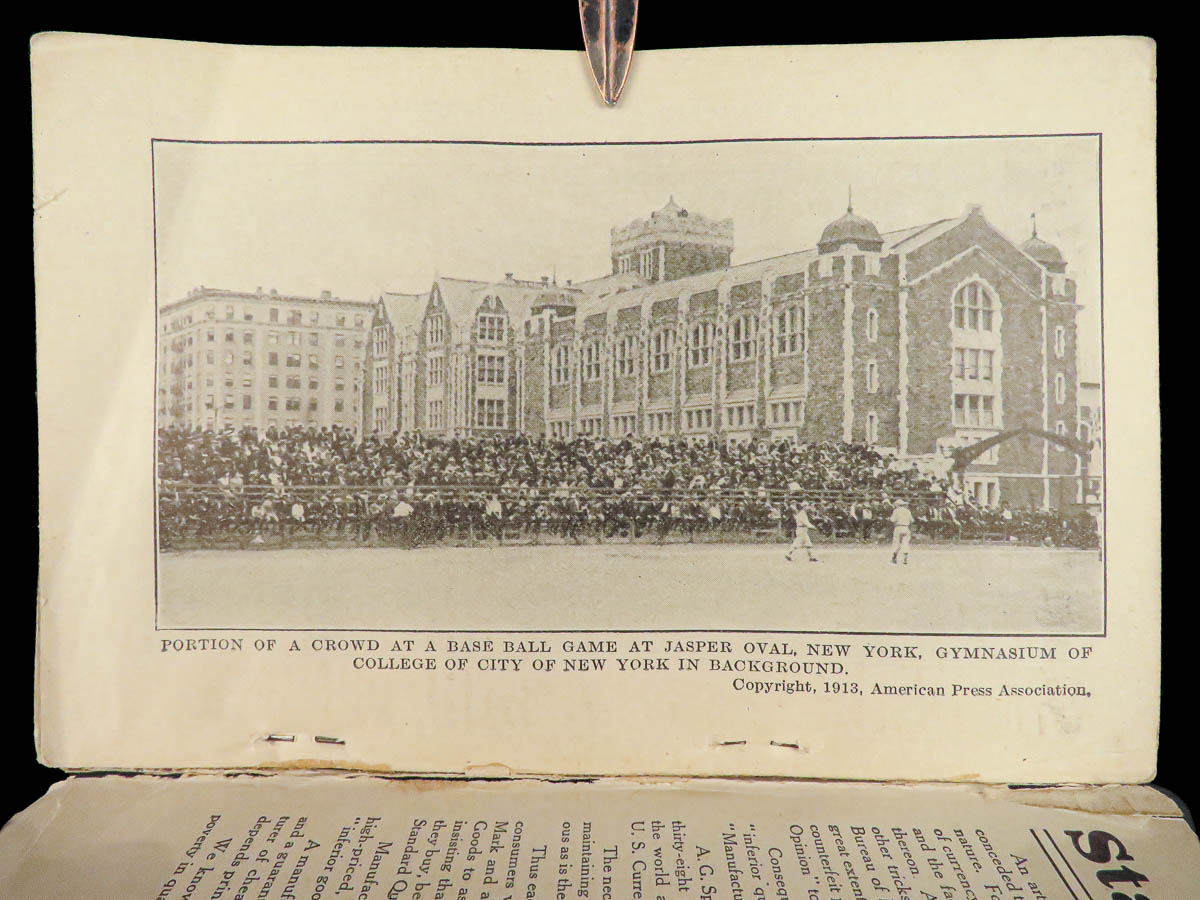 PORTION OF A CROWD AT A BASE BALL GAME AT JASPER OVAL, NEW YORK, GYMNASIUM OF
COLLEGE OF CITY OF NEW YORK IN BACKGROUND.
Copyright, 1913, American Press Association.
Sta
An art
conceded t
nature. Fo
of currency
and the fa
thereon. A
other tricks
Bureau of
great extent
counterfeit
Opinion" to
Consequ
"inferior qu
"Manufactu
A. G. Sp
thirty-eight
the world a
U. S. Curre
The nec
maintaining
ous as is the
Thus ea
consumers w
Mark and a
Goods to as
insisting tha
they buy, be
Standard Qu
Manufac
high-priced,
"inferior goo
A manuf
and a guaran
turer of chea
depends prin
We know
poverty in qua